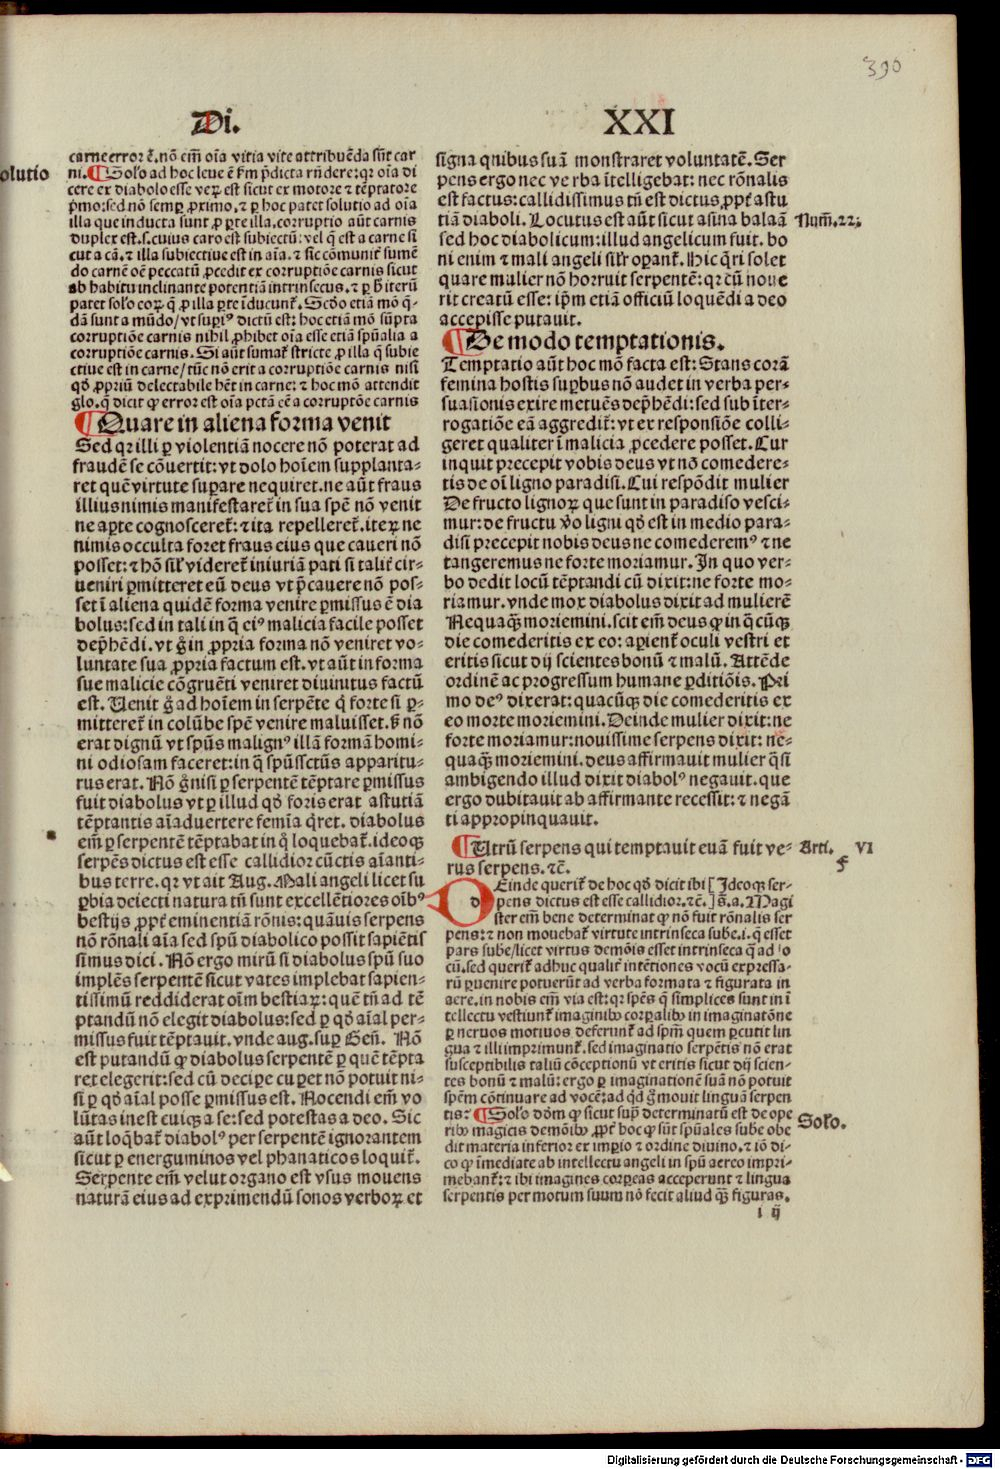 390
Di.
XXI
carne error ē. nō em̄ oīa vitia vite attribuēda sūt car
ni. ¶ Solo ad hoc leue ē ẜm p̄dicta rn̄dere: qr oīa di
cere ex diabolo esse veꝝ est sicut ex motore ⁊ tēptatore
p̄mo: sed nō semꝑ ꝓximo. ⁊ ꝑ hoc patet solutio ad oīa
illa que inducta sunt ꝓ ꝑte illa. corruptio aūt carnis
duplex est. s. cuius caro est subiectū: vel q̄ est a carne si
cut a cā. ⁊ illa subiectiue est in aīa. ⁊ sic cōmunit̄ sume
do carnē oē peccatū ꝓcedit ex corruptiōe carnis sicut
ab habitu inclinante potentiā intrinsecus. ⁊ ꝑ ħ iterū
patet solo eoꝝ q̄ ꝓ illa ꝑte īducunt̄. Scd̄o etiā mō q̄-
dā sunt a mūdo / vt supri⁹ dictū est: hoc etiā mō sūpta
corruptiōe carnis nihil ꝓhibet oīa esse etiā spūalia a
corruptiōe carnis. Si aūt sumat̄ stricte ꝓ illa q̄ subie
ctiue est in carne / tūc nō erit a corruptiōe carnis nisi
qd̄ ꝓpriū delectabile hēt in carne: ⁊ hoc mō attendit
glo. q̄ dicit ꝙ error est oīa pctā cē a corruptōe carnis
¶ Quare in aliena forma venit
Sed qr illi ꝑ violentiā nocere nō poterat ad
fraudē se cōuertit: vt dolo hoīem supplanta-
ret quē virtute suꝑare nequiret. ne aūt fraus
illius nimis manifestaret̄ in sua spē nō venit
ne aꝑte cognosceret̄: ⁊ ita repelleret̄. iteꝝ ne
nimis occulta foret fraus eius que caueri nō
posset: ⁊ hō sil̄ videret̄ iniuriā pati si talit̄ cir-
ueniri ꝑmitteret eū deus vt p̄cauere nō pos-
set ī aliena quidē forma venire ꝑmissus ē dia
bolus: sed in tali in q̄ ei⁹ malicia facile posset
dep̄hēdi. vt g̊ in ꝓpria forma nō veniret vo-
luntate sua ꝓpria factum est. vt aūt in forma
sue malicie cōgruēti veniret diuinitus factū
est. Uenit g̊ ad hoīem in serpēte q̄ forte si ꝑ-
mitteret̄ in colūbe spē venire maluisset. ẜ nō
erat dignū vt spūs malign⁹ illā formā homi-
ni odiosam faceret: in q̄ spūssctūs apparitu-
rus erat. Nō g̊ nisi ꝑ serpentē tēptare ꝑmissus
fuit diabolus vt ꝑ illud qd̄ foris erat astutiā
tēptantis aīaduertere femīa q̄ret. diabolus
em̄ ꝑ serpentē tēptabat in q̊ loquebat̄. ideoqꝫ
serpēs dictus est esse callidior cūctis aīanti-
bus terre. qr vt ait Aug. Mali angeli licet su
ꝑbia deiecti natura tn̄ sunt excellētiores oīb⁹
bestijs ꝓpt̄ eminentiā rōnis: quāuis serpens
nō rōnali aīa sed spū diabolico possit sapiētis
simus dici. Nō ergo mirū si diabolus spū suo
implēs serpentē sicut vates implebat sapien-
tissimū reddiderat oīm bestiaꝝ: quē tn̄ ad tē
ptandū nō elegit diabolus: sed ꝑ qd̄ aīal per-
missus fuit tēptauit. vnde aug. suꝑ Gen̄. Nō
est putandū ꝙ diabolus serpentē ꝑ quē tēpta
ret elegerit: sed cū deciꝑe cuꝑet nō potuit ni-
si ꝑ qd̄ aīal posse ꝑmissus est. Nocendi em̄ vo
lūtas inest cuiqꝫ a se: sed potestas a deo. Sic
aūt loq̄bat̄ diabol⁹ per serpentē ignorantem
sicut ꝑ energuminos vel phanaticos loquit̄.
Serpente em̄ velut organo est vsus mouens
naturā eius ad exprimendū sonos verboꝝ et
signa quibus suā monstraret voluntatē. Ser
pens ergo nec verba ītelligebat: nec rōnalis
est factus: callidissimus tn̄ est dictus ꝓpt̄ astu
tiā diaboli. Locutus est aūt sicut asina balaā
sed hoc diabolicum: illud angelicum fuit. bo
ni enim ⁊ mali angeli sil̄r oꝑant̄. Hic q̄ri solet
quare mulier nō horruit serpentē: qr cū noue
rit creatū esse: ip̄m etiā officiū loquēdi a deo
accepisse putauit.
¶ De modo temptationis.
Temptatio aūt hoc mō facta est: Stans corā
femina hostis suꝑbus nō audet in verba per-
suasionis exire metuēs dep̄hēdi: sed sub īter-
rogatiōe eā aggredit̄: vt ex responsiōe colli-
geret qualiter ī malicia ꝓcedere posset. Cur
inquit precepit vobis deus vt nō comedere-
tis de oī ligno paradisi. Cui respōdit mulier
De fructo lignoꝝ que sunt in paradiso vesci-
mur: de fructu v̊o ligni qd̄ est in medio para-
disi precepit nobis deus ne comederem⁹ ⁊ ne
tangeremus ne forte moriamur. In quo ver-
bo dedit locū tēptandi cū dixit: ne forte mo-
riamur. vnde mox diabolus dixit ad mulierē
Nequaqꝫ moriemini. scit em̄ deus ꝙ in q̄cūqꝫ
die comederitis ex eo: aꝑient̄ oculi vestri et
eritis sicut dij scientes bonū ⁊ malū. Attēde
ordinē ac progressum humane ꝑditiōis. Pri
mo de⁹ dixerat: quacūqꝫ die comederitis ex
eo morte moriemini. Deinde mulier dixit: ne
forte moriamur: nouissime serpens dixit: ne-
quaqꝫ moriemini. deus affirmauit mulier q̄si
ambigendo illud dixit diabol⁹ negauit. que
ergo dubitauit ab affirmante recessit: ⁊ negā
ti appropinquauit.
¶ Utrū serpens qui temptauit euā fuit ve-
rus serpens. ⁊c̄.
DEinde querit̄ de hoc qd̄ dicit ibi [ Ideoqꝫ ser-
pens dictus est esse callidior. ⁊c̄. ] s̄. a. Magi
ster em̄ bene determinat ꝙ nō fuit rōnalis ser
pens: ⁊ non mouebat̄ virtute intrinseca sube. i. q̄ esset
pars sube / licet virtus demōis esset intrinseca q̄ ad lo
cū. sed querit̄ adhuc qualit̄ intētiones vocū expressa-
rū ꝑuenire potuerūt ad verba formata ⁊ figurata in
aere. in nobis em̄ via est: qr spēs q̄ simplices sunt in ī
tellectu vestiunt̄ imaginibꝫ corꝑalibꝫ in imaginatōne
⁊ ꝑ neruos motiuos deferunt̄ ad spm̄ quem ꝑcutit lin
gua ⁊ illi imprimunt̄. sed imaginatio serpētis nō erat
susceptibilis taliū cōceptionū vt eritis sicut dij scien-
tes bonū ⁊ malū: ergo ꝑ imaginationē suā nō potuit
spēm cōtinuare ad vocē: ad qd̄ g̊ mouit linguā serpen
tis: ¶ Solo dōm ꝙ sicut supͣ determinatū est de ope
ribꝫ magicis demōibꝫ ꝓpt̄ hoc ꝙ sūt spūales sube obe
dit materia inferior ex imꝑio ⁊ ordine diuino. ⁊ iō di-
co ꝙ īmediate ab intellectu angeli in spū aereo impri-
mebant̄: ⁊ ibi imagines corꝑeas acceperunt ⁊ lingua
serpentis per motum suum nō fecit aliud qꝫ figuras.
i ij
olutio
Nūm. 22;
Arti. VI
f
Solo.
Digitalisierung gefördert durch die Deutsche Forschungsgemeinschaft - DFG